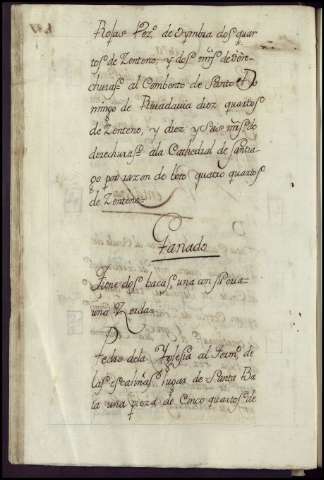 Rosas Vez.º de Sumbia dos quar
tos de Zenteno, y dos mrs. de dere-
churas al Combento de Santo Do
mingo de Rivadavia diez quartos
de Zenteno, y diez y seis mrs. de
derechuras ala Cathedral de Santia-
go por razon de boto quatro quartos
de Zenteno
Ganado
Tiene dos bacas, una con su cria
una Zerda
Pedro dela Yglesia al Term.º de
las estabinas lugar de Santa Ba
la una pieza de Cinco quartos de